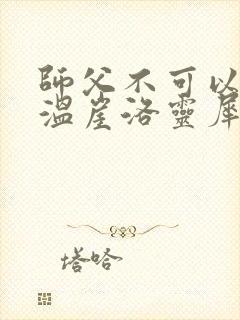 師父不可以
溫崖洛靈犀
塔哈